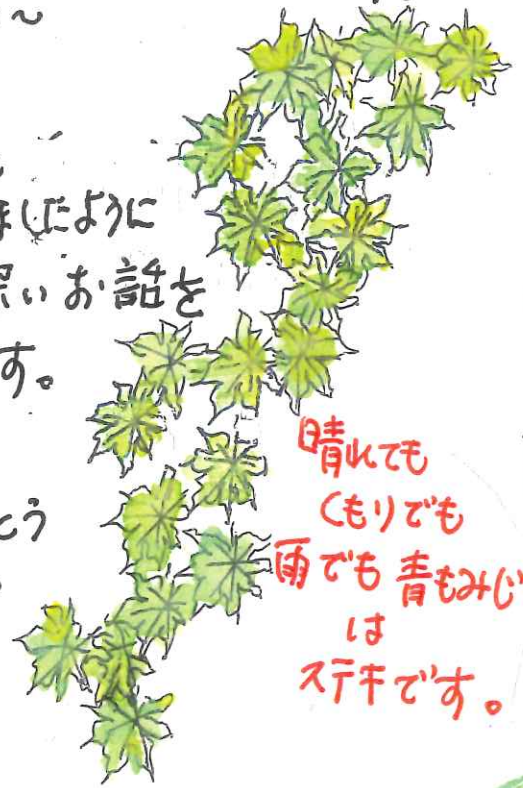 〜
ましたように
深いお話を
す。
とう
晴れても
くもりでも
雨でも 青もみじ
は
ステキです。